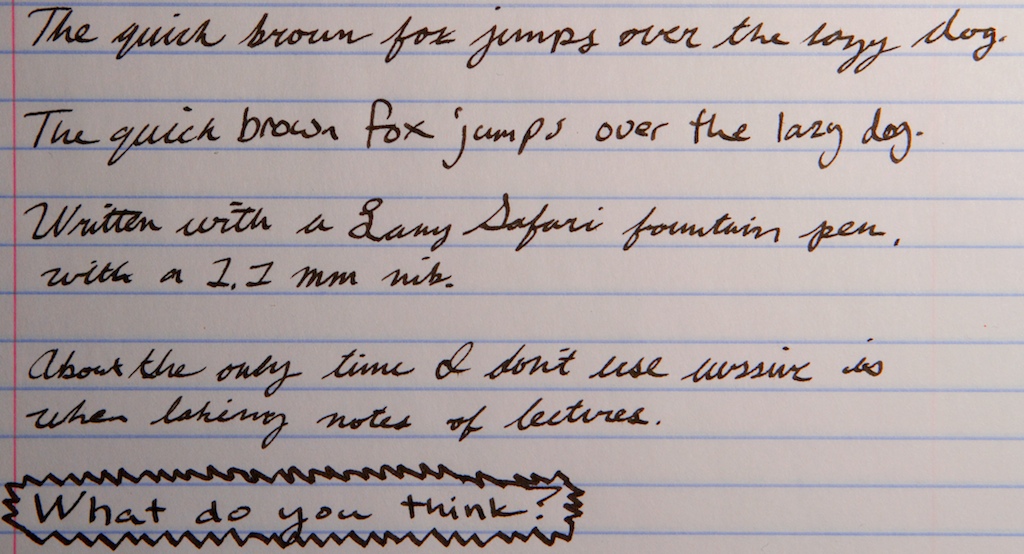 The quick brown fox jumps over the lazy dog.
The quick brown fox jumps over the lazy dog.
Written with a Lamy Safari fountain pen,
with a 1.1 mm nib.
About the only time I don't use cursive is
when taking notes of lectures.
What do you think?